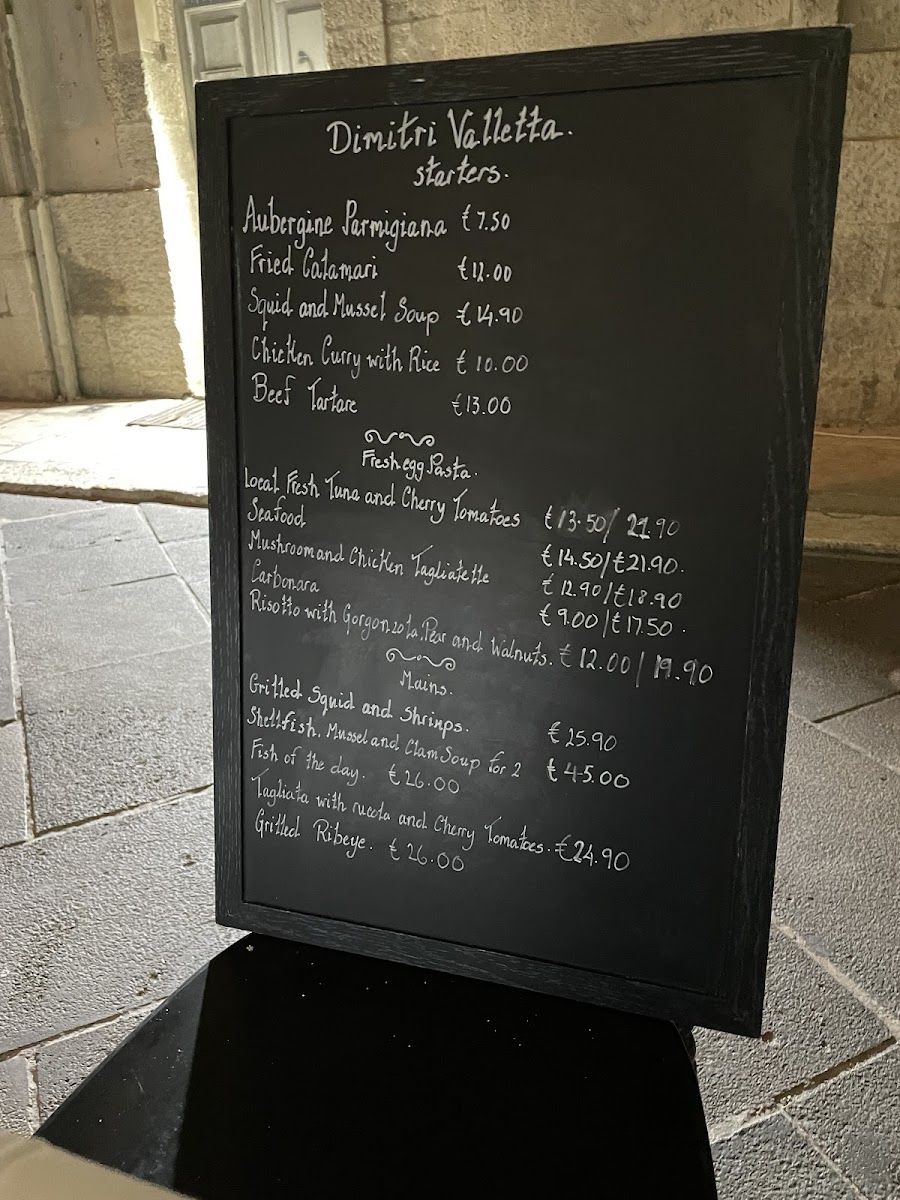 Dimitri Valletta.
starters.
Aubergine Parmigiana €7.50
Fried Calamari €12.00
Squid and Mussel Soup €14.90
Chicken Curry with Rice €10.00
Beef Tartare €13.00
Fresh egg Pasta.
Local Fresh Tuna and Cherry Tomatoes €13.50/21.90
Seafood €14.50/€21.90.
Mushroom and Chicken Tagliatelle €12.90/€18.90
Carbonara €9.00/€17.50.
Risotto with Gorgonzola, Pear and Walnuts. €12.00/19.90
Mains.
Grilled Squid and Shrimps. €25.90
Shellfish, Mussel and Clam Soup for 2 €45.00
Fish of the day. €26.00
Tagliata with rucola and Cherry Tomatoes. €24.90
Grilled Ribeye. €26.00